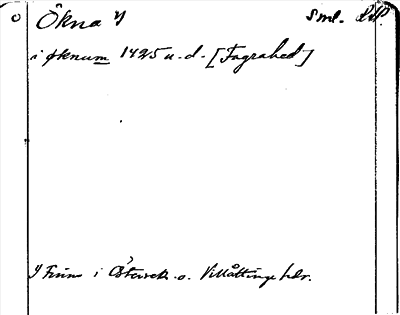 Ökna y Sml. RAP.
i øknum 1425 u.d. [Fagrahed]
y Finns i Östervik o. Villåttinge hdr.